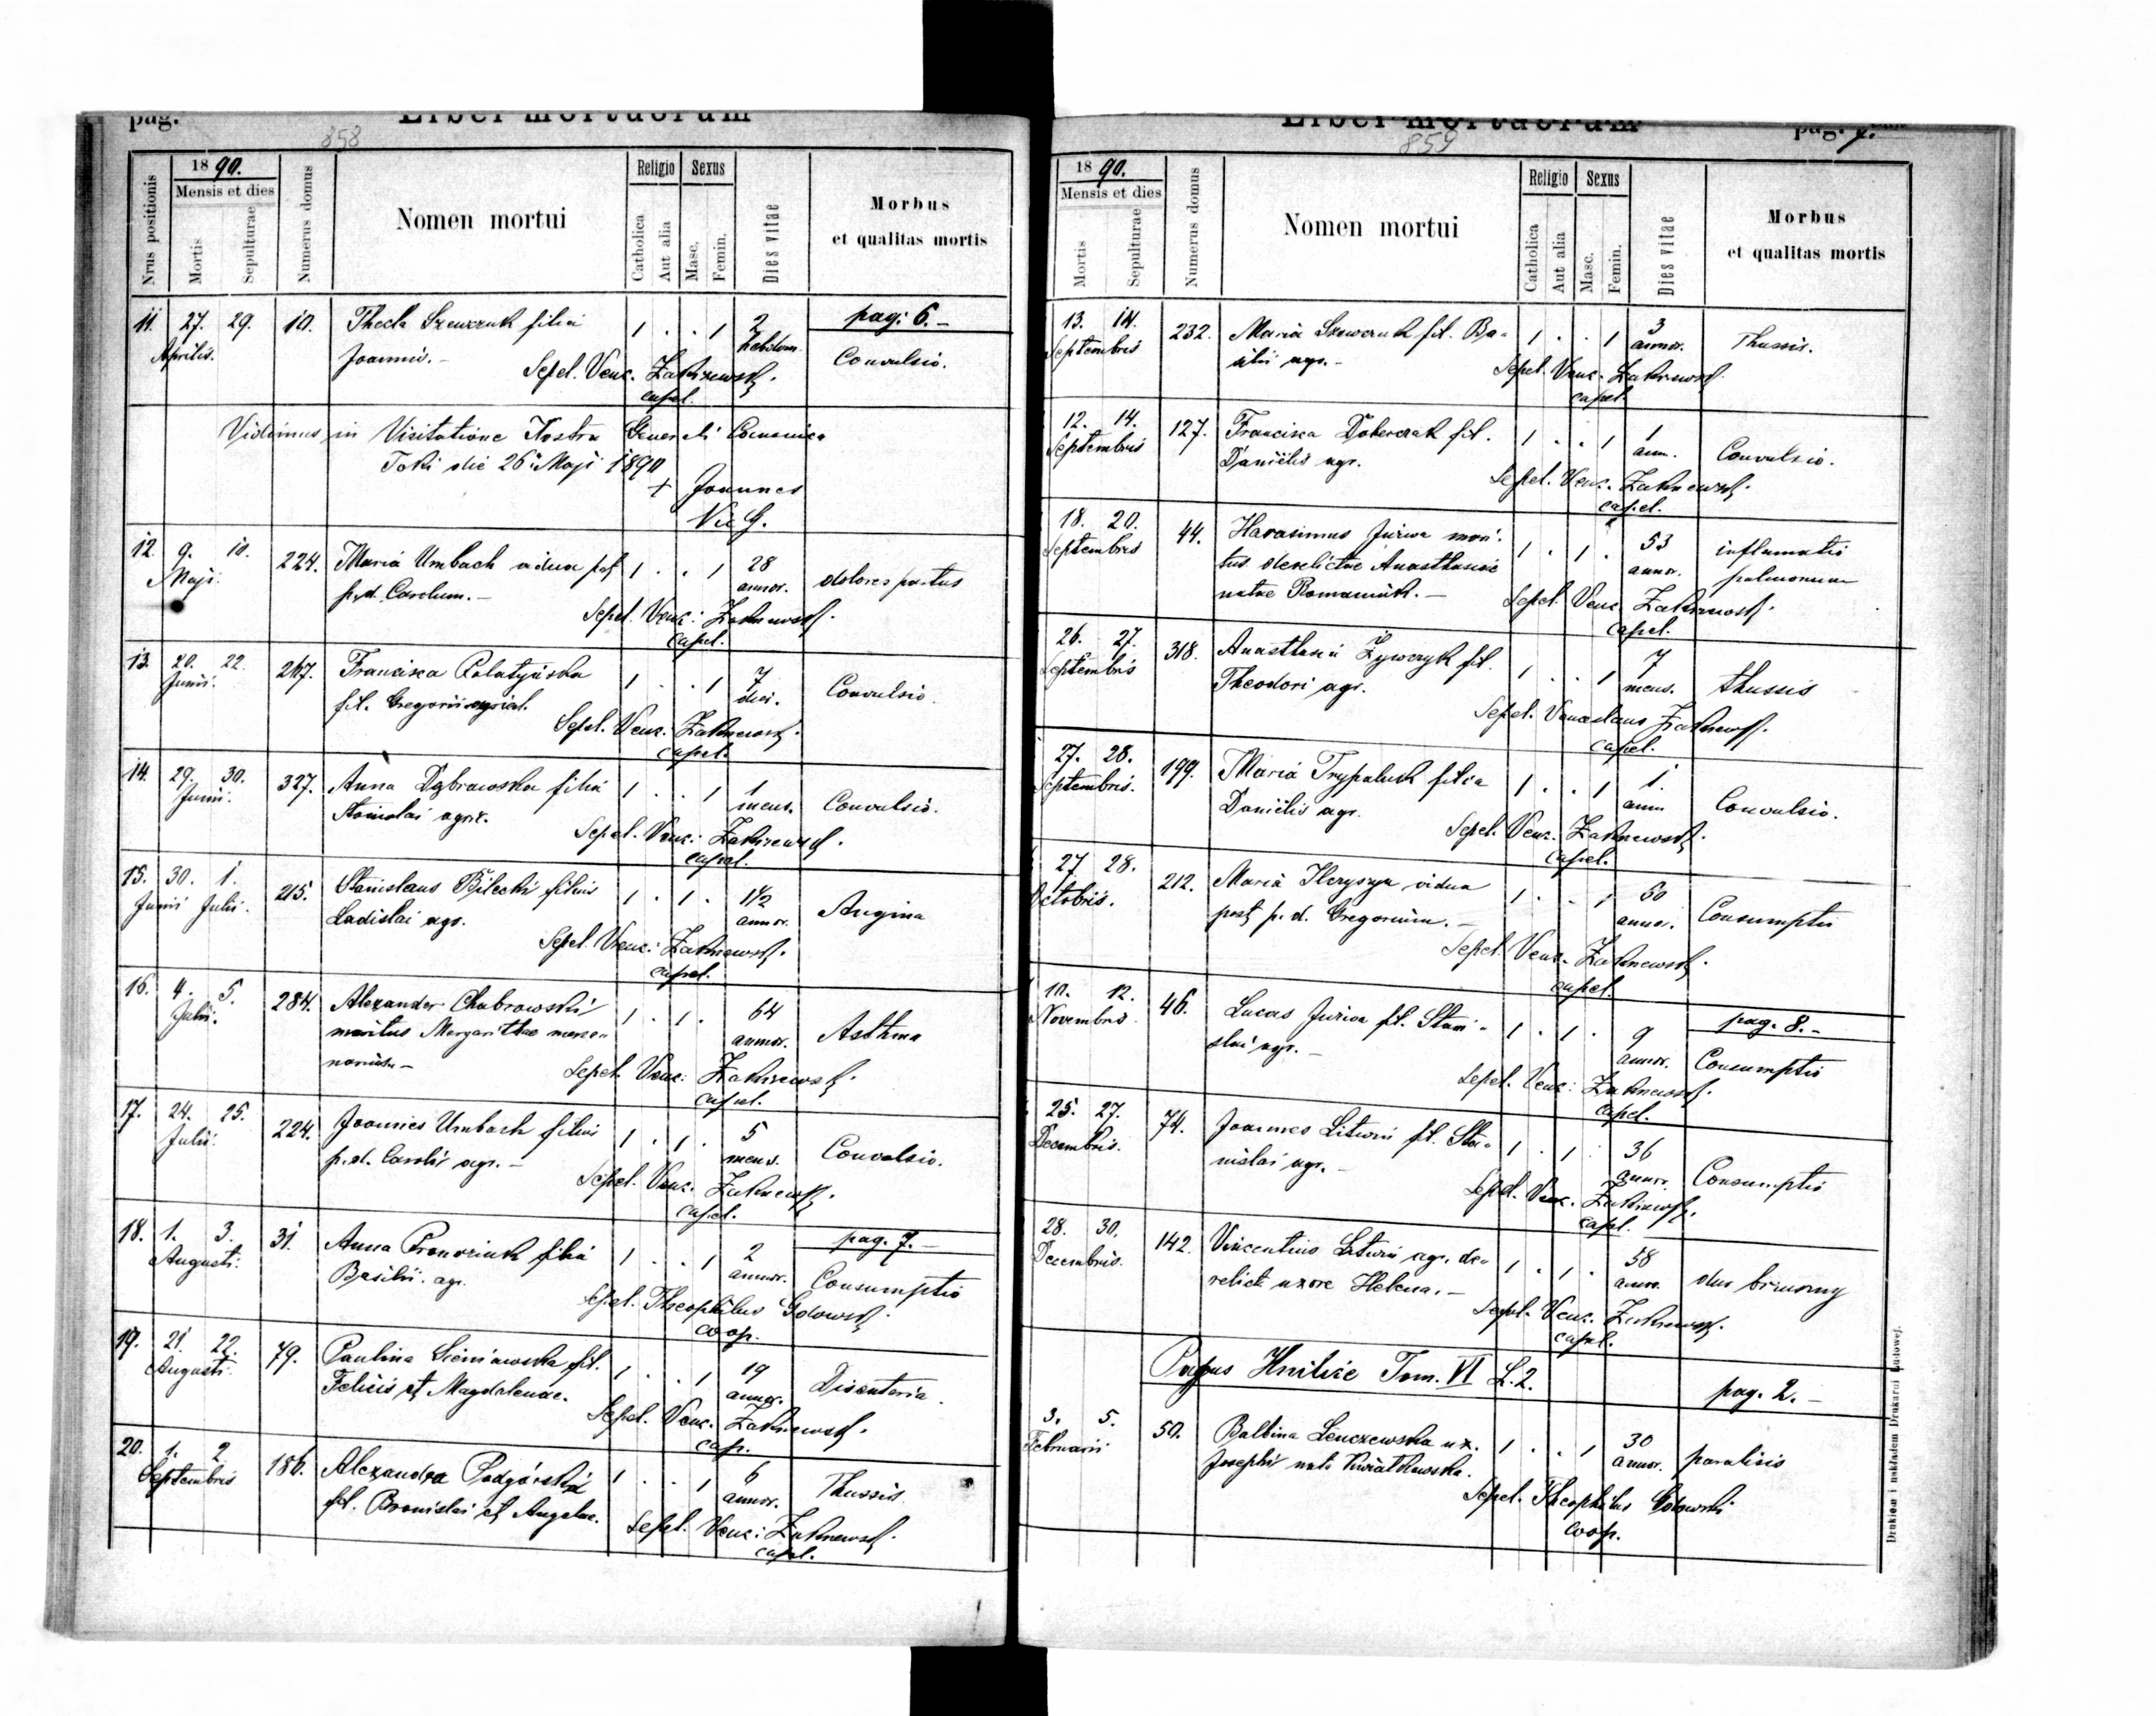 pag.
Liber mortuorum
858
Nrus positionis
1890.
Mensis et dies
Mortis
Sepulturae
Numerus domus
Nomen mortui
Religio
Catholica
Aut alia
Sexus
Masc.
Femin.
Dies vitae
Morbus
et qualitas mortis
pag: 6.-
11. 27. 29. 10. Thecla Szewczuk filia 1 . . 1 2
Aprilis. Joannis.- hebdom. Convulsio.
Sepel. Venc. Zakrzewski.
capel.
Vidimus in Visitatione Nostra Generali Canonica
Toki die 26 Maji 1890
+ Joannes
Vic G.
12. 9. 10. 224. Maria Umbach vidua post 1 . . 1 28
Maji. p.d. Carolum.- annor. dolores partus
Sepel. Venc: Zakrzewski.
capel.
13. 20. 22. 267. Francisca Palatyńska 1 . . 1 7
Junii. fil. Gregorii dies. Convulsio.
Sepel. Venc: Zakrzewski.
capel.
14. 29. 30. 327. Anna Dąbrowska filia 1 . . 1 1
Junii. Stanislai agric. mens. Convulsio.
Sepel. Venc: Zakrzewski.
capel.
15. 30. 1. 215. Stanislaus Bilecki filius 1 . 1 . 1½
Junii Julii. Ladislai agr. annor. Angina
Sepel. Venc: Zakrzewski.
capel.
16. 4. 5. 284. Alexander Chabrowski 1 . 1 . 64
Julii. maritus Margarithae merce- annor. Asthma
narius.-
Sepel. Venc: Zakrzewski.
capel.
17. 24. 25. 224. Joannes Umbach filius 1 . 1 . 5
Julii. p.d. Caroli agr.- mens. Convulsio.
Sepel. Venc. Zakrzewski.
capel.
pag. 7.-
18. 1. 3. 31. Anna filia 1 . . 1 2
Augusti. Basilii agr. annor. Consumptio
Sepel. Theophilus Godowski.
coop.
19. 21. 22. 79. Paulina Sieniawska fil. 1 . . 1 19
Augusti. Felicis et Magdalenae. annor. Disenteria.
Sepel. Venc. Zakrzewski.
cap.
20. 1. 2. 186. Alexandra Podgórska 1 . . 1 6
Septembris fil. Bronislai et Angelae. annor. Thussis
Sepel. Venc: Zakrzewski.
capel.
Liber mortuorum
859
pag. 7.
1890.
Mensis et dies
Mortis
Sepulturae
Numerus domus
Nomen mortui
Religio
Catholica
Aut alia
Sexus
Masc.
Femin.
Dies vitae
Morbus
et qualitas mortis
13. 14. 232. Maria Szewczuk fil. Ba- 1 . . 1 3
Septembris silii agr.- annor. Thussis.
Sepel. Venc. Zakrzewski.
capel.
12. 14. 127. Francisca Doberczak fil. 1 . . 1 1
Septembris Daniëlis agr. ann. Convulsio.
Sepel. Venc. Zakrzewski.
capel.
18. 20. 44. Harasimus Juriva mari- 1 . 1 . 53
Septembris tus derelictae Anasthasiae annor. inflamatio
natae Romaniuk.- pulmonum
Sepel. Venc. Zakrzewski.
capel.
26. 27. 318. Anasthasia Żywczyk fil. 1 . . 1 7
Septembris Theodori agr. mens. thussis
Sepel. Venceslaus Zakrzewski.
capel.
27. 28. 199. Maria Trypaluk filia 1 . . 1 1.
Septembris. Daniëlis agr. ann Convulsio.
Sepel. Venc. Zakrzewski.
capel.
27 28. 212. Maria vidua 1 . . 1 50
Octobris. post p. d. Gregorium.- annor. Consumptio
Sepel. Venc. Zakrzewski.
capel.
pag. 8.-
10. 12. 46. Lucas Juriva fil. Stani- 1 . 1 . 9
Novembris slai agr.- annor. Consumptio
Sepel. Venc: Zakrzewski.
capel.
25. 27. 74. Joannes Litwin fil. Sta- 1 . 1 . 36
Decembris. nislai agr.- annor. Consumptio
Sepel. Venc. Zakrzewski.
capel.
28. 30. 142. Vincentius Litwin agr. de- 1 . 1 . 58
Decembris. relicta uxore Helena.- annor. dur brzuszny
Sepel. Venc. Zakrzewski.
capel.
Pagus Hnilice Tom. VI L. 2.
pag. 2.-
3. 5. 50. Balbina Lenczewska ux. 1 . . 1 30
Februarii Josephi nata Kwiatkowska. annor. paralisis
Sepel. Theophilus Godowski
coop.
Drukiem i nakładem Drukarni Ludowej.